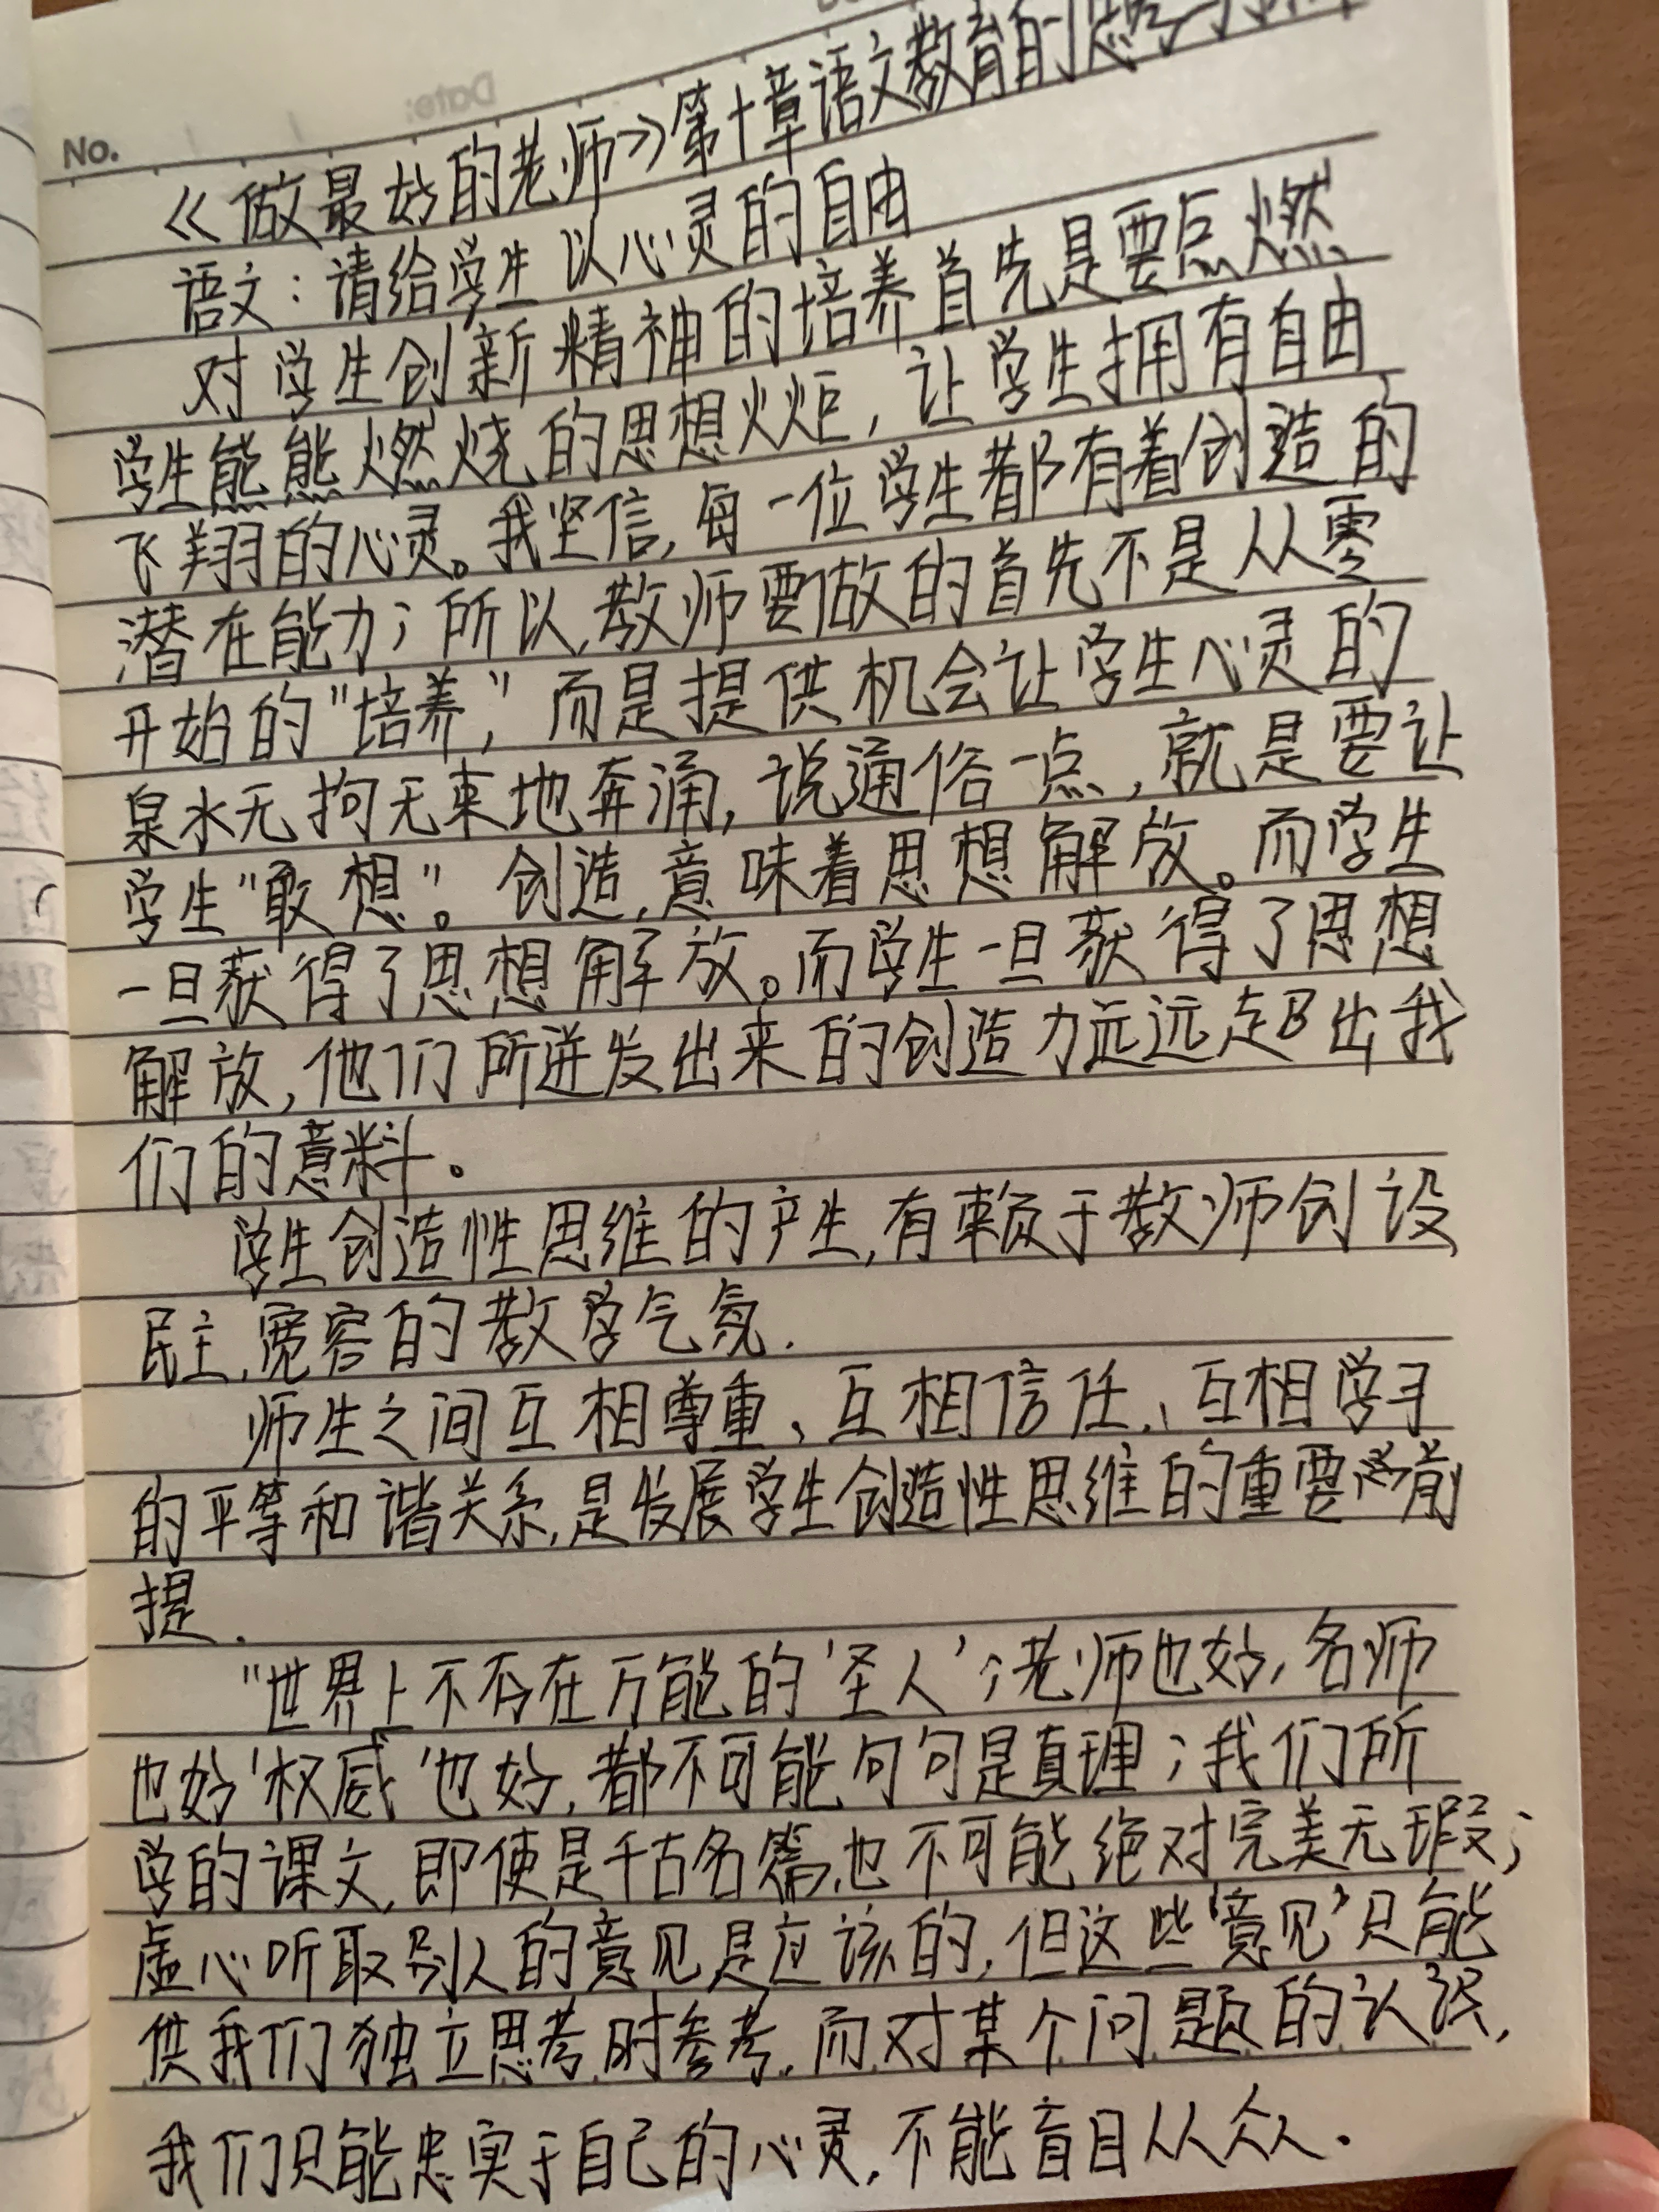 No.
Date:
《做最好的老师》第十章语文教育的思考与
语文：请给学生以心灵的自由
对学生创新精神的培养首先是要点燃
学生熊熊燃烧的思想火炬，让学生拥有自由
飞翔的心灵。我坚信，每一位学生都有着创造的
潜在能力；所以，教师要做的首先不是从零
开始的"培养"，而是提供机会让学生心灵的
泉水无拘无束地奔涌，说通俗一点，就是要让
学生"敢想"。创造，意味着思想解放。而学生
一旦获得了思想解放。而学生一旦获得了思想
解放，他们所迸发出来的创造力远远超出我
们的意料。
学生创造性思维的产生，有赖于教师创设
民主，宽容的教学气氛.
师生之间互相尊重、互相信任、互相学习
的平等和谐关系，是发展学生创造性思维的重要前
提.
"世界上不存在万能的'圣人'；老师也好，名师
也好'权威'也好，都不可能句句是真理；我们所
学的课文，即使是千古名篇，也不可能绝对完美无瑕；
虚心听取别人的意见是应该的，但这些'意见'只能
供我们独立思考时参考，而对某个问题的认识，
我们只能忠实于自己的心灵，不能盲目从众.